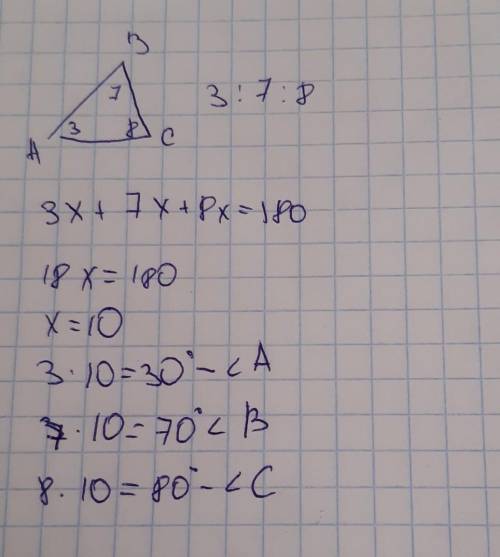 B
7
3 : 7 : 8
3
8
A
C
3x + 7x + 8x = 180
18x = 180
x = 10
3 · 10 = 30° - < A
7 · 10 = 70° < B
8 · 10 = 80° - < C